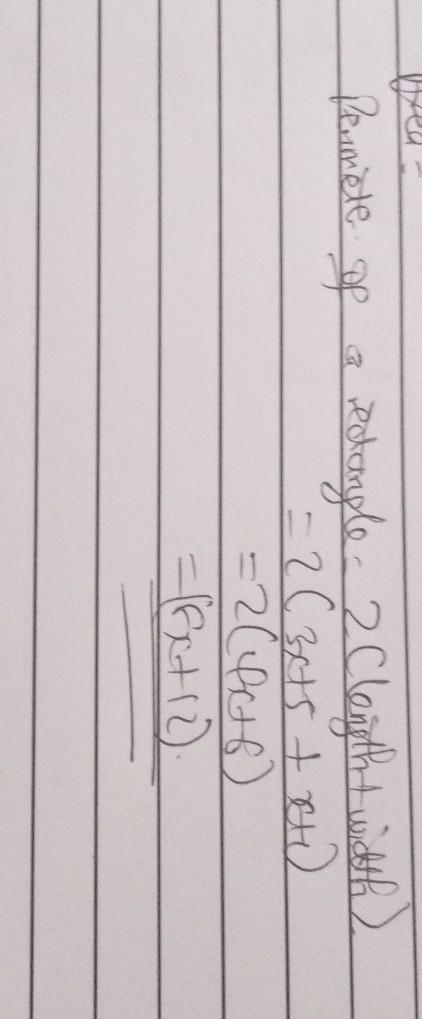 Perimete of a rectangle = 2(length + width)
= 2(3x+5 + x+1)
= 2(4x+6)
= (8x+12).